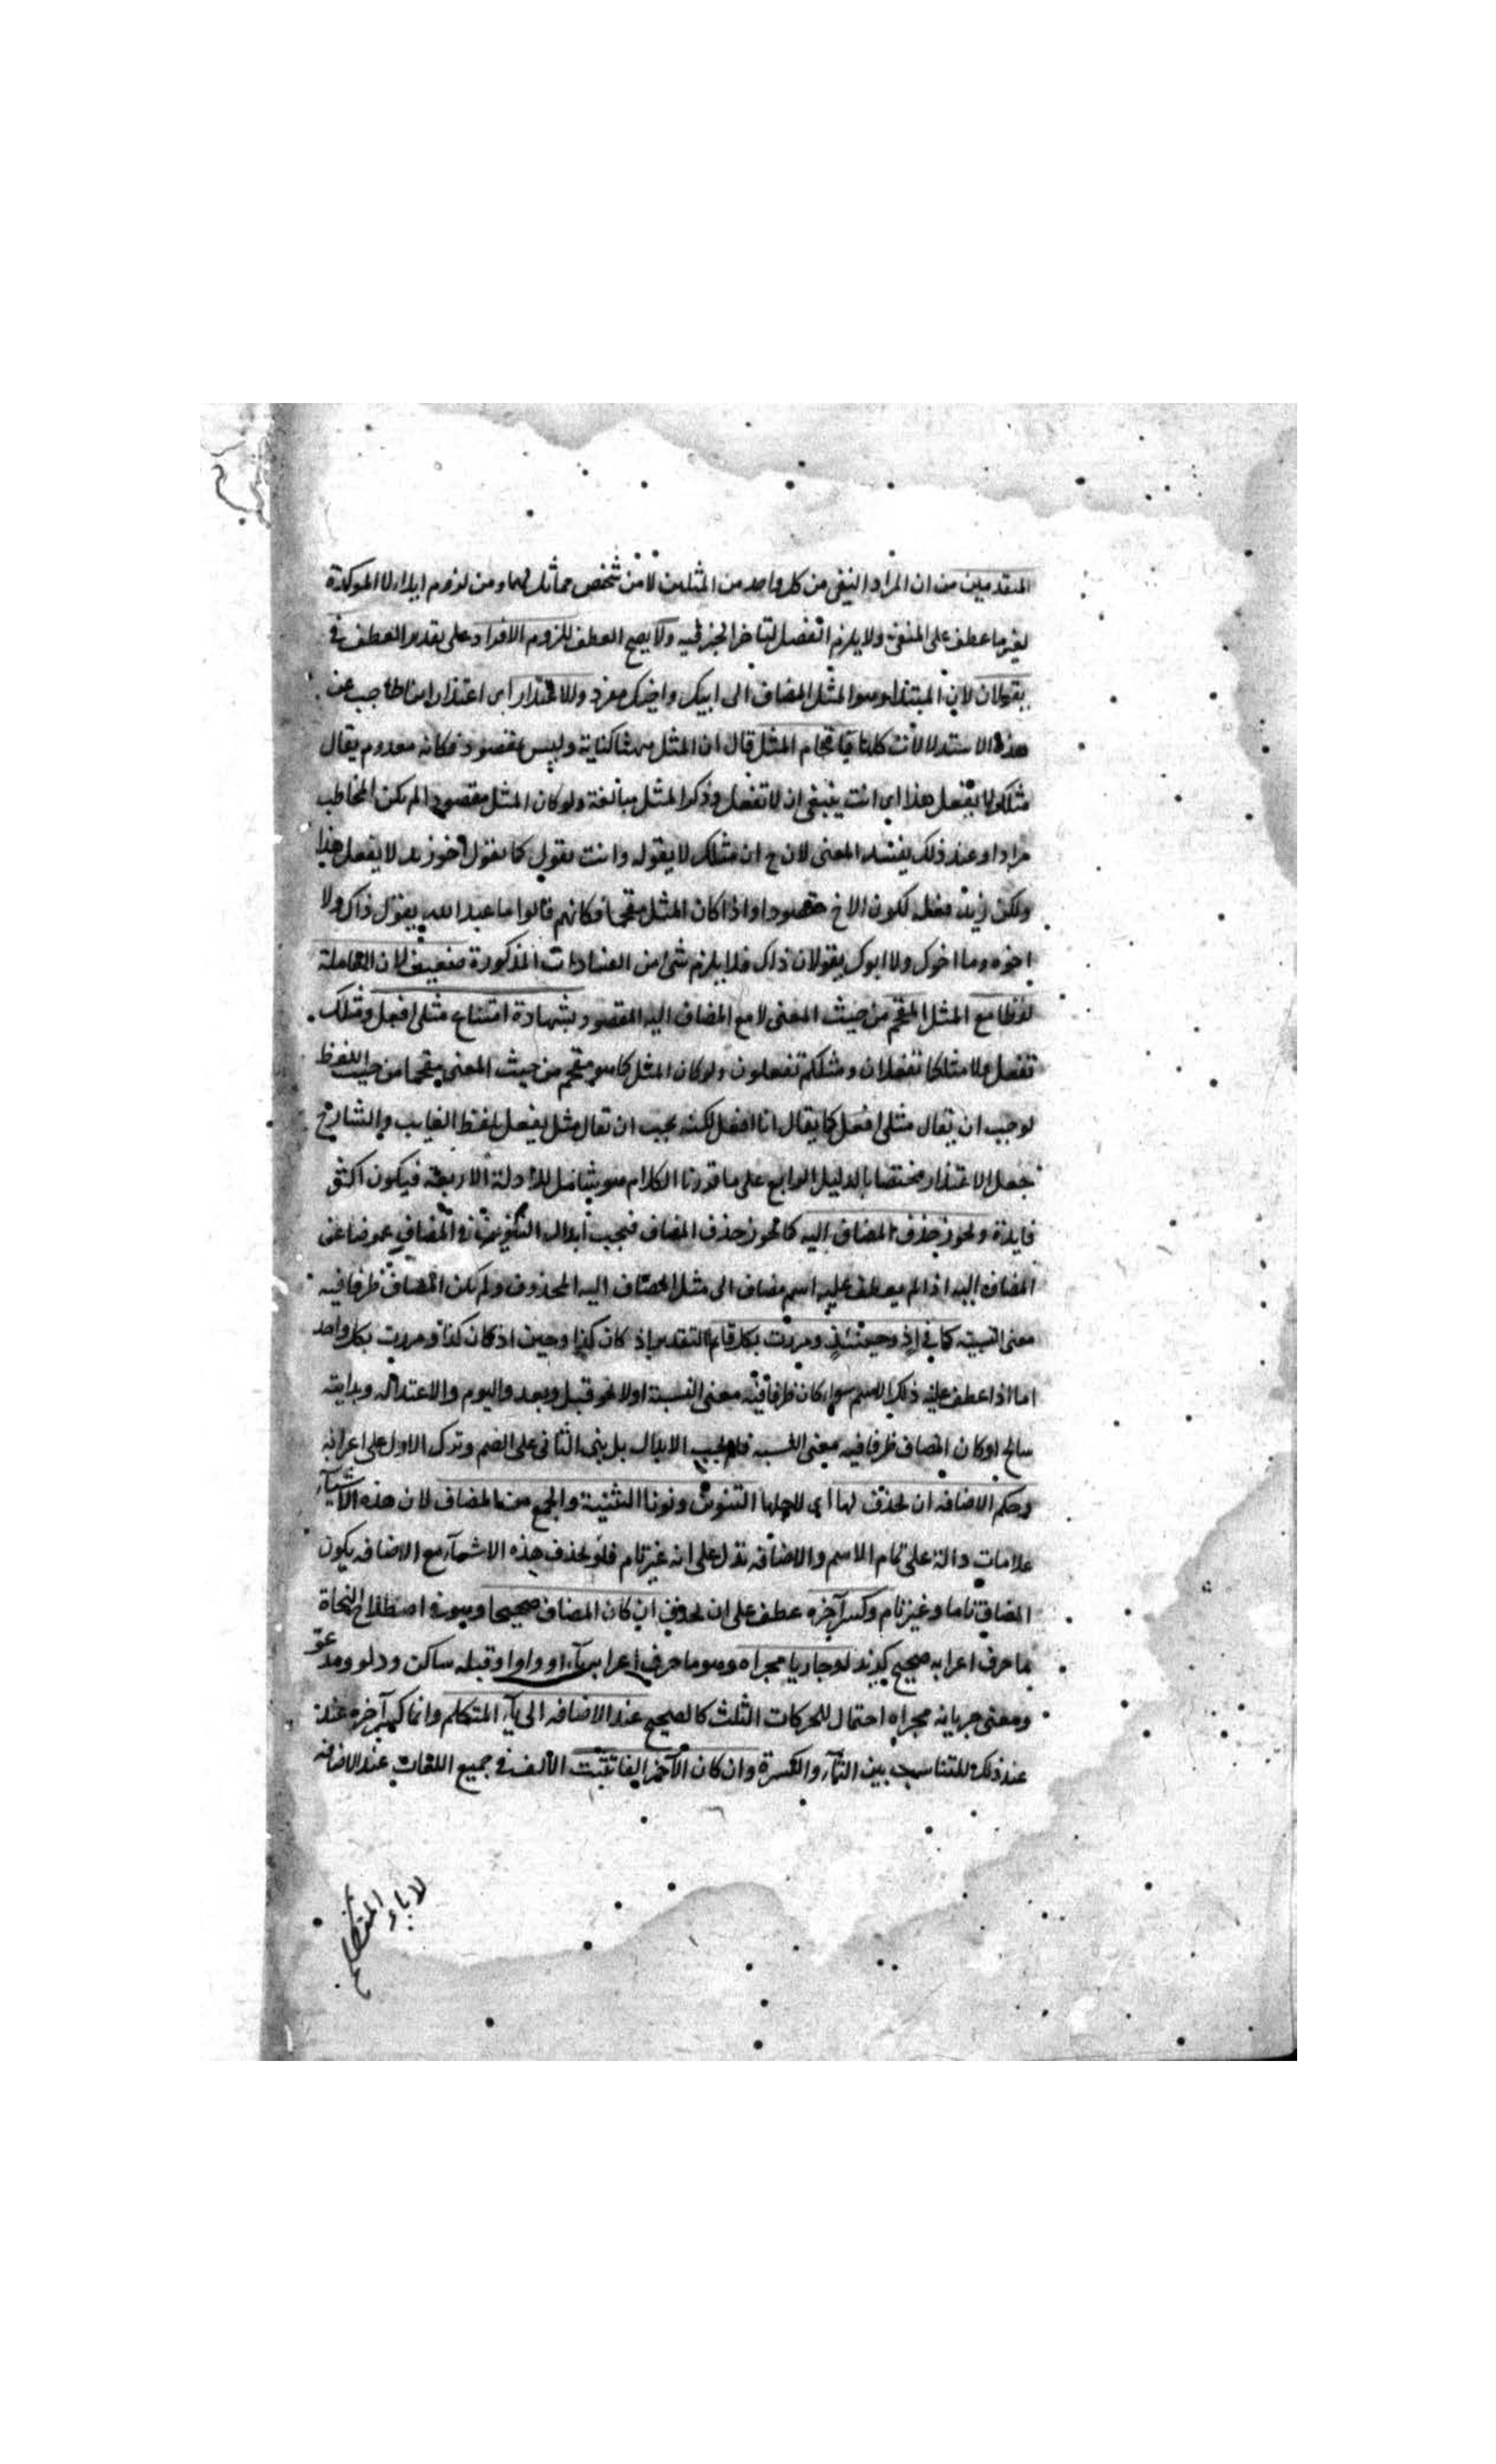 المتقدمين من ان المراد النفى من كل واحد من المثلين لا من شخص مماثل لهما ومن لزوم ايراد لا الموكدة
لغير ما عطف على المنفى ولا يلزم الفصل لتاخر الخبر فيه ولا يصح العطف للزوم الافراد على تقدير العطف فى
يقولان لان المبتدا وهو المثل المضاف الى ابيك واخيك مفرد والاعتذار اى اعتذار ابن الحاجب عن
هذه الاستدلالات كلها باقحام المثل قال ان المثل ههنا كناية وليس بمقصود فكانه معدوم يقال
مثلك لا يفعل هذا اى انت ينبغى ان لا تفعل وذكر المثل مبالغة ولو كان المثل مقصودا لم يكن المخاطب
مرادا وعند ذلك يفسد المعنى لان ح ان مثلك لا يقوله وانت تقول كما تقول اخو زيد لا يفعل هذا
ولكن زيد فعل لكون الاخ مقصودا واذا كان المثل مقحما فكانهم قالوا ما عبد الله يقول ذاك ولا
اخوه وما اخوك ولا ابوك يقولان ذاك فلا يلزم شئ من الفسادات المذكورة ضعيف لان المعاملة
لفظا مع المثل المقحم من حيث المعنى لا مع المضاف اليه المقصود بشهادة امتناع مثلى افعل ومثلك
تفعل ومثلكما تفعلان ومثلكم تفعلون ولو كان المثل كما هو مقحم من حيث المعنى مقحما من حيث اللفظ
لوجب ان يقال مثلى افعل كما يقال انا افعل لكنه يجب ان يقال مثلى يفعل بلفظ الغايب والشارح
جعل الاعتذار مختصا بالدليل الرابع على ما قررنا الكلام هو يشامل للادلة الاربعة فيكون اكثر
فايدة ويجوز حذف المضاف اليه كما يجوز حذف المضاف فيجب ابدال التنوين فى المضاف عوضا عن
المضاف اليه اذا لم يعطف عليه اسم مضاف الى مثل المضاف اليه المحذوف ولم يكن المضاف ظرفا فيه
معنى النسبة كما فى اذ وحينئذ ومررت بكل قايم التقدير اذ كان كذا وحين اذ كان كذا ومررت بكل واحد
اما اذا عطف عليه ذلك الاسم سواء كان ظرفا فيه معنى النسبة اولا نحو قبل وبعد واليوم والاعتدال وبداية
سالم او كان المضاف ظرفا فيه معنى النسبة فلا يجب الابدال بل بنى الثانى على الضم وترك الاول على اعرابه
وحكم الاضافة ان يحذف لها اى لاجلها التنوين ونونا التثنية والجمع من المضاف لان هذه الاشيآء
علامات دالة على تمام الاسم والاضافة تدل على انه غير تام فلو لم يحذف هذه الاشيآء مع الاضافة يكون
المضاف تاما وغير تام وكسر آخره عطف على ان يحذف ان كان المضاف صحيحا وهو فى اصطلاح النحاة
ما حرف اعرابه صحيح كزيد او جاريا مجراه وهو ما حرف اعرابه يآء او واوا وقبله ساكن ودلو ومدعوّ
ومعنى جريانه مجراه احتماله للحركات الثلث كالصحيح عند الاضافة الى يآء المتكلم وانما كسر آخره عند
عند ذلك للتناسب بين اليآء والكسرة وان كان الآخر الفا تثبت الالف فى جميع اللغات عند الاضافة
لا ياء المتكلم